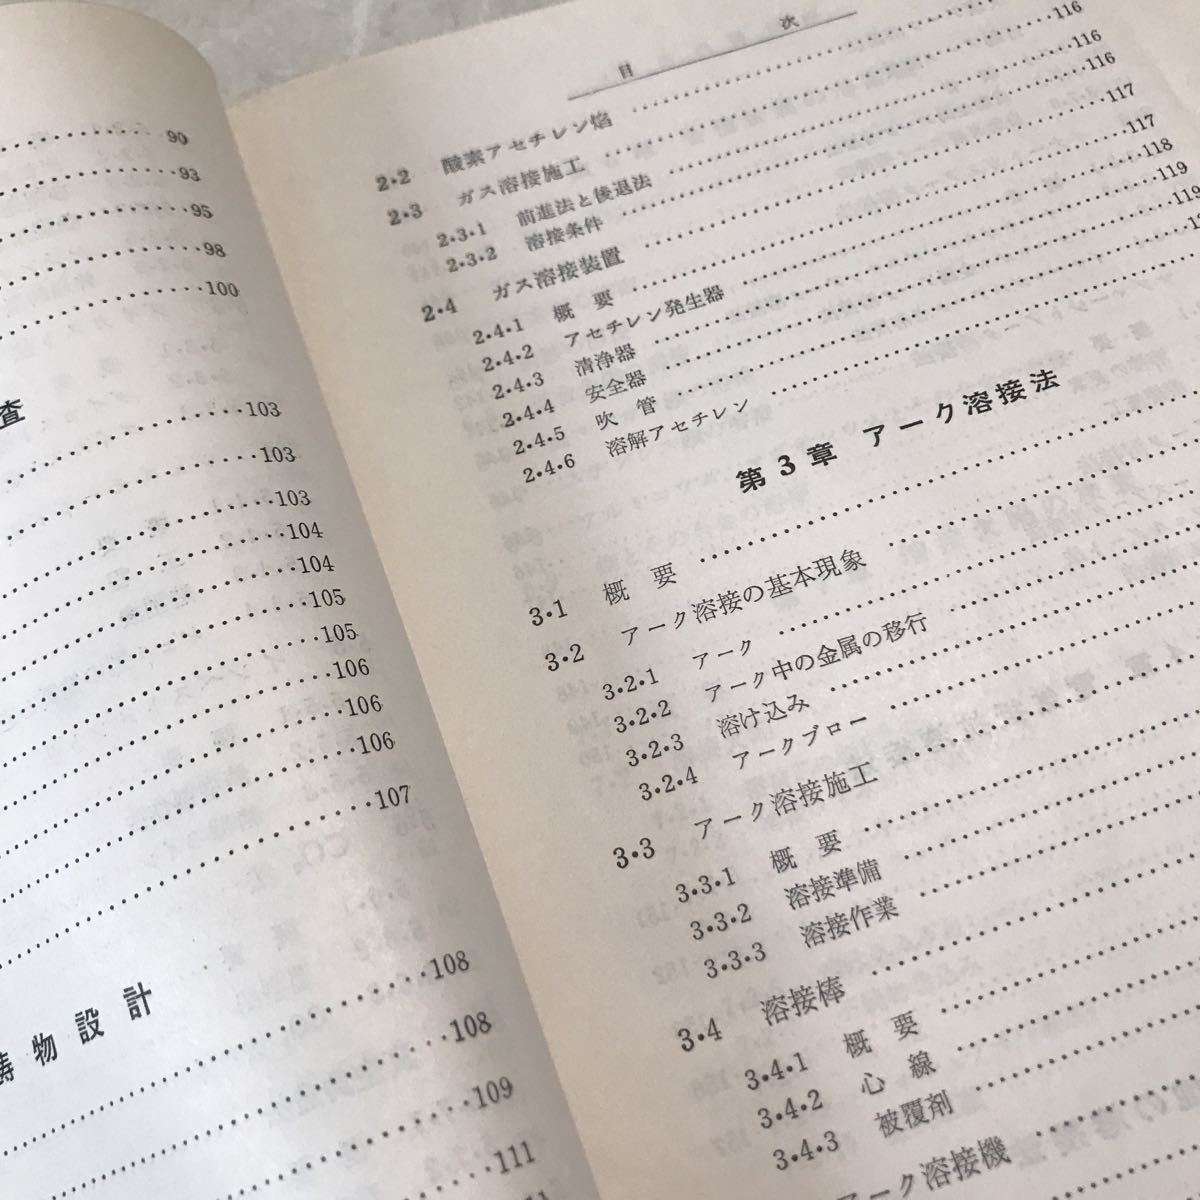 90
93
95
98
100
査
103
103
103
104
104
105
105
106
106
106
107
鋳物設計
108
108
109
111
目 次
2・2 酸素アセチレン焔 116
2・3 ガス溶接施工 116
2・3・1 前進法と後退法 116
2・3・2 溶接条件 117
2・4 ガス溶接装置 117
2・4・1 概要 118
2・4・2 アセチレン発生器 119
2・4・3 清浄器 119
2・4・4 安全器
2・4・5 吹管
2・4・6 溶解アセチレン
第3章 アーク溶接法
3・1 概要
3・2 アーク溶接の基本現象
3・2・1 アーク
3・2・2 アーク中の金属の移行
3・2・3 溶け込み
3・2・4 アークブロー
3・3 アーク溶接施工
3・3・1 概要
3・3・2 溶接準備
3・3・3 溶接作業
3・4 溶接棒
3・4・1 概要
3・4・2 心線
3・4・3 被覆剤
アーク溶接機